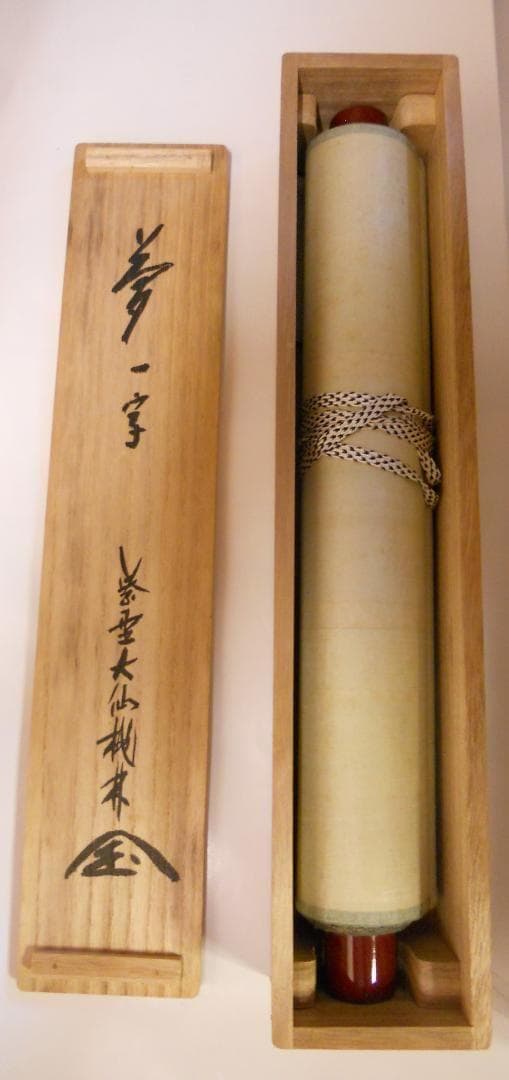 夢一字
紫野大仙桃林